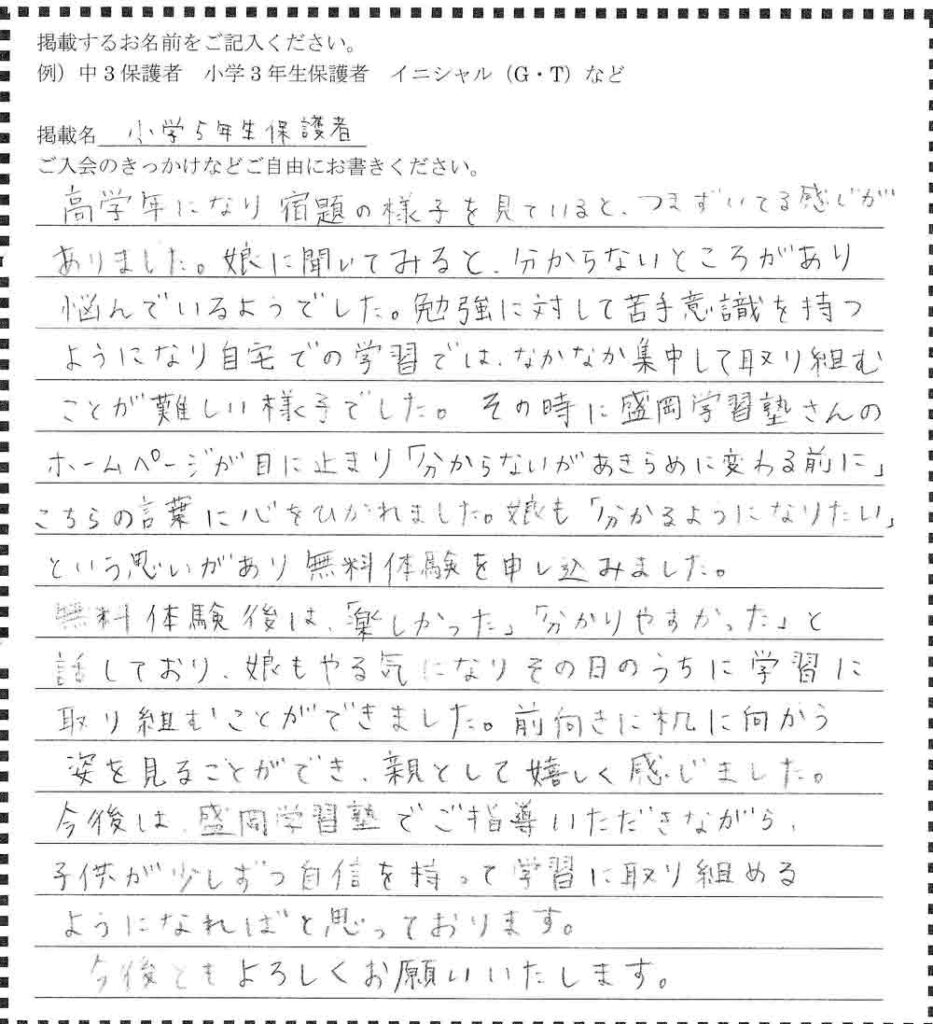 掲載するお名前をご記入ください。
例）中３保護者　小学３年生保護者　イニシャル（G・T）など
掲載名 小学5年生保護者
ご入会のきっかけなどご自由にお書きください。
高学年になり宿題の様子を見ていると、つまずいてる感じが
ありました。娘に聞いてみると、分からないところがあり
悩んでいるようでした。勉強に対して苦手意識を持つ
ようになり自宅での学習では、なかなか集中して取り組む
ことが難しい様子でした。その時に盛岡学習塾さんの
ホームページが目に止まり「分からないがあきらめに変わる前に」
こちらの言葉に心をひかれました。娘も「分かるようになりたい」
という思いがあり無料体験を申し込みました。
無料体験後は、「楽しかった」「分かりやすかった」と
話しており、娘もやる気になりその日のうちに学習に
取り組むことができました。前向きに机に向かう
姿を見ることができ、親として嬉しく感じました。
今後は、盛岡学習塾でご指導いただきながら、
子供が少しずつ自信を持って学習に取り組める
ようになればと思っております。
今後ともよろしくお願いいたします。